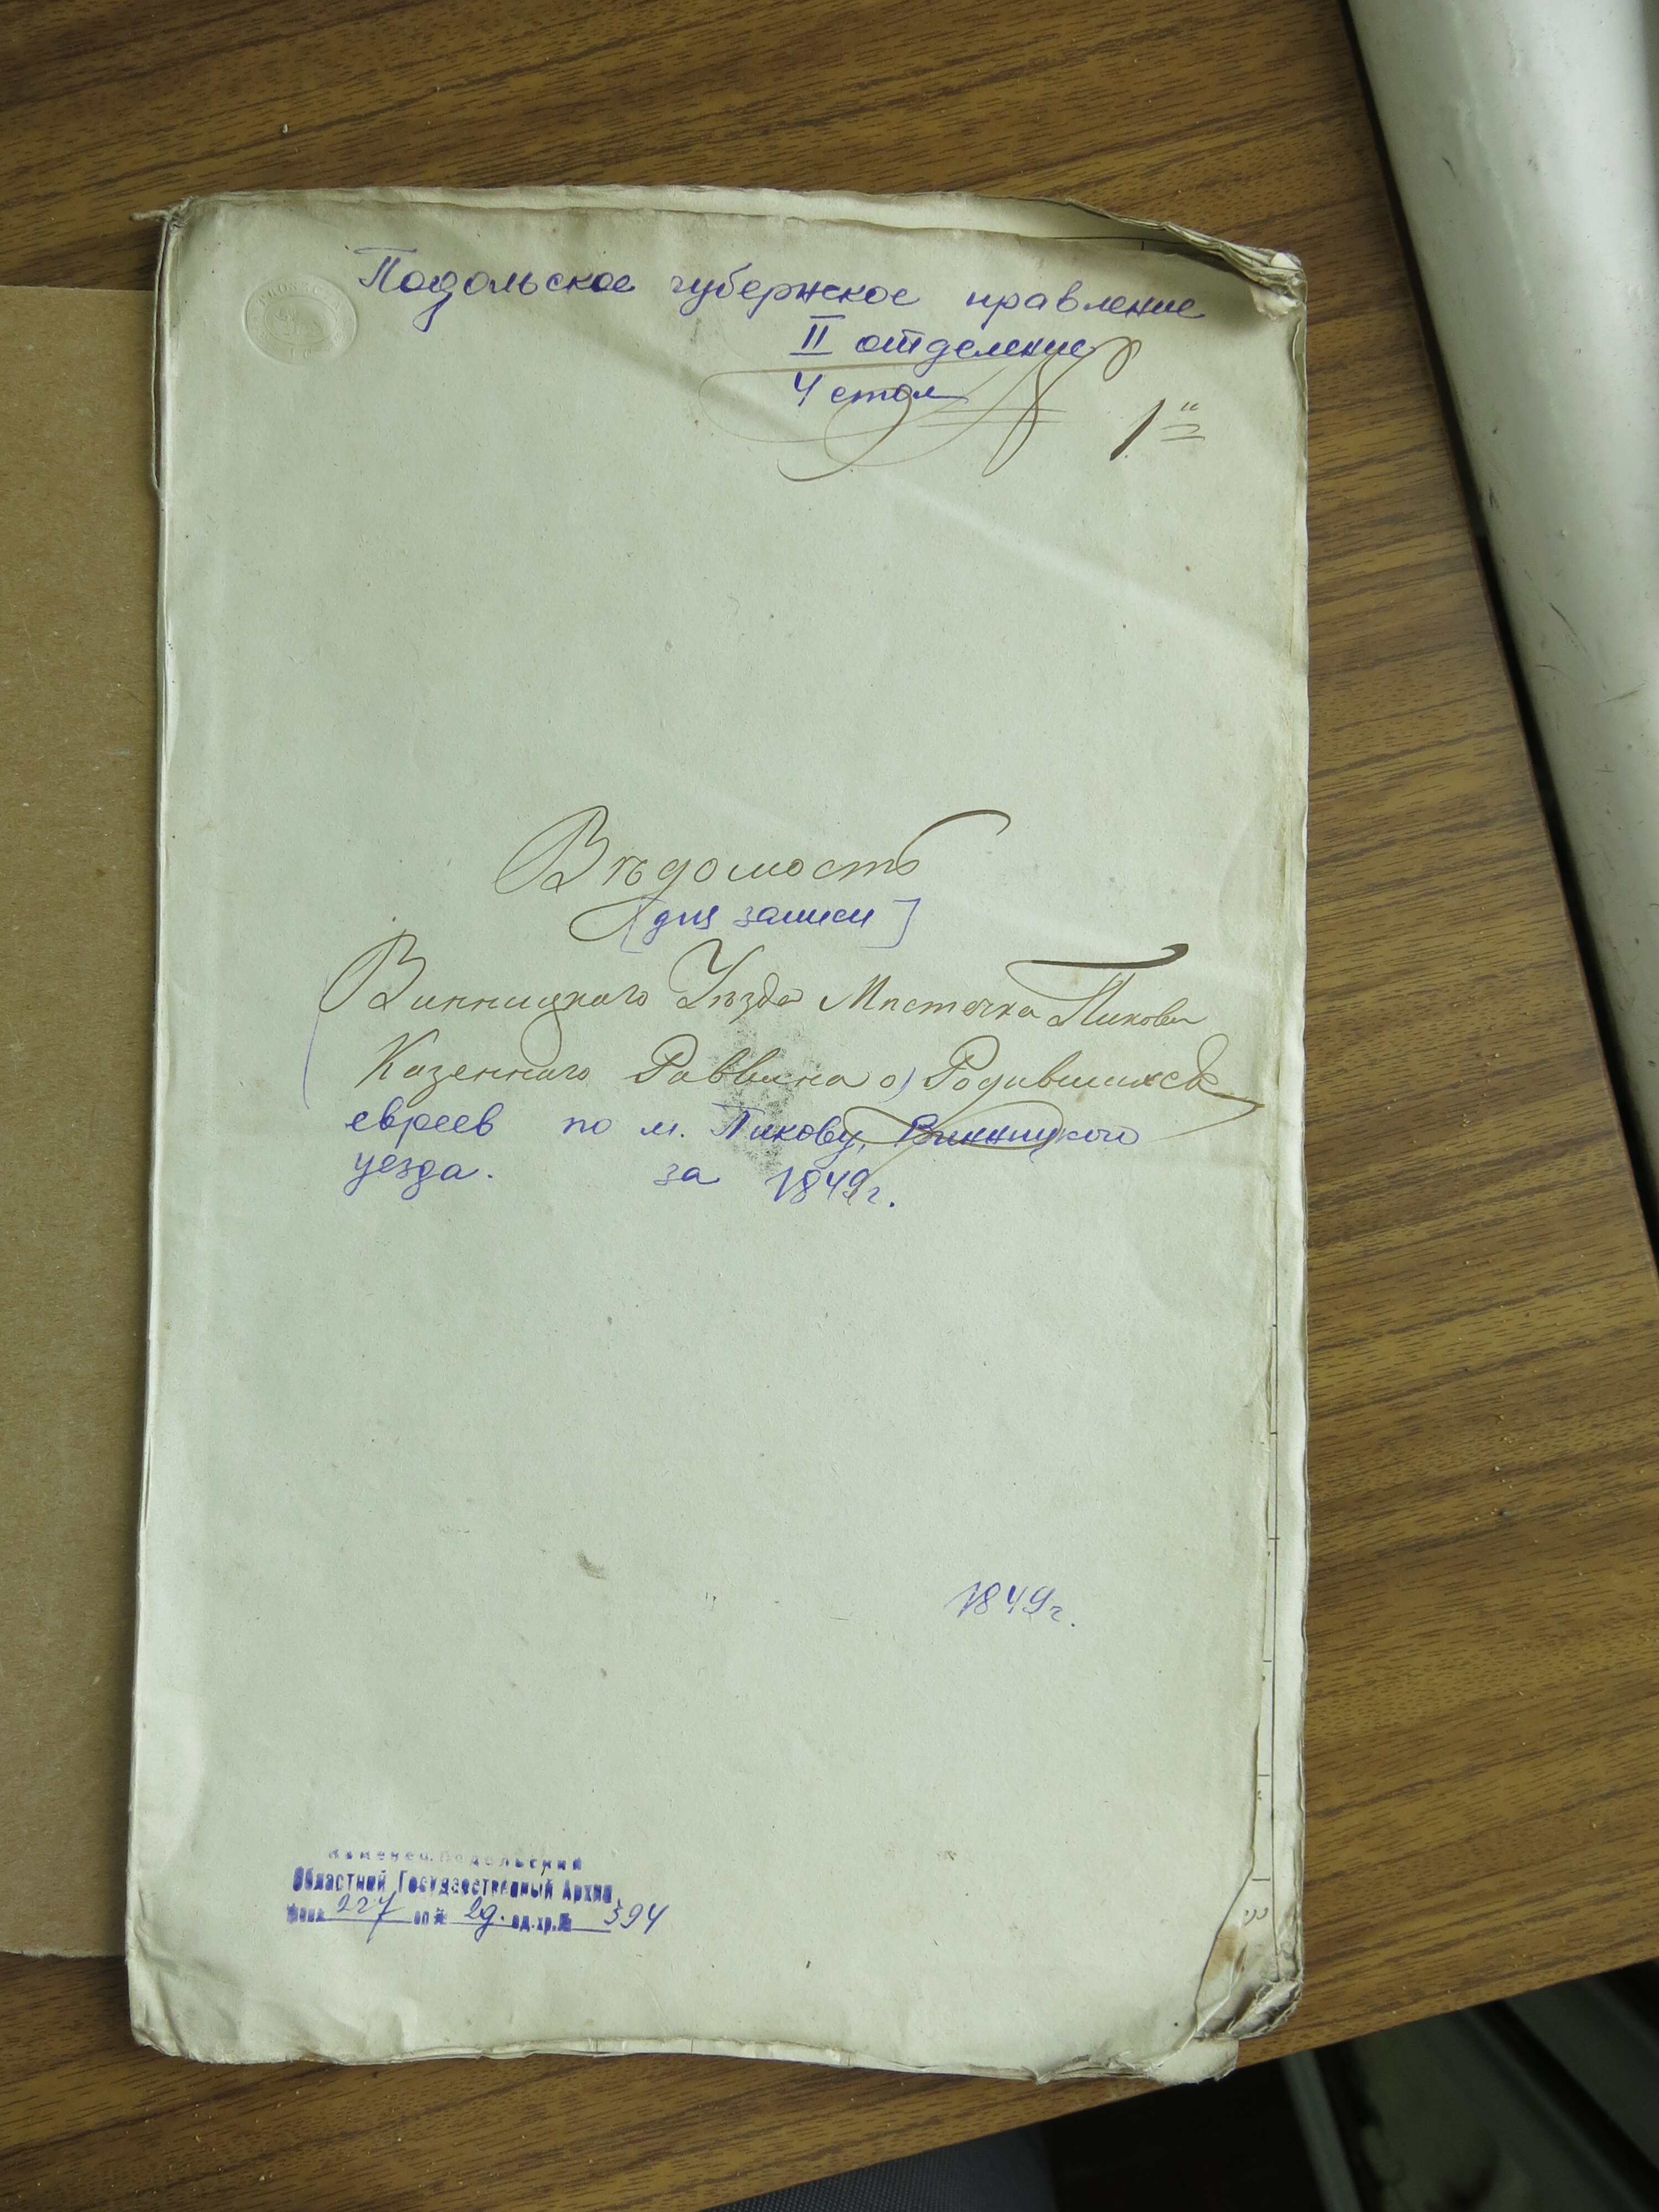 Подольское губернское правление
II отделение
4 стол
1
Вѣдомость
[для записи]
Винницкаго Уѣзда Мѣстечка Пикова
Казеннаго Раввина о) Родившихся
евреев по м. Пикову, Винницкого
уезда. за 1849г.
1849г.
Каменец-Подольский
Областной Государственный Архив
Фонд 227 оп № 2д. ед.хр.№ 394